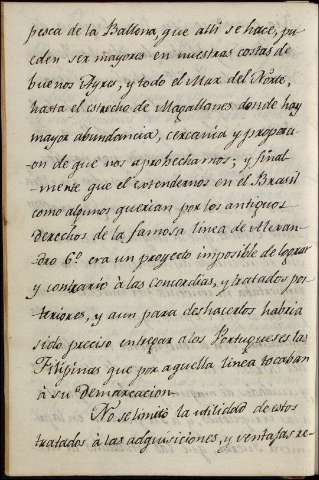 pesca de la Ballena, que alli se hace, pu
eden ser mayores en nuestras costas de
buenos Ayres, y todo el Mar del Norte,
hasta el estrecho de Magallanes donde hay
mayor abundancia, cercania y proporci
on de que nos aprobechasemos; y final
-mente que el extendernos en el Brasil
como algunos querian por los antiguos
derechos de la famosa linea de Alexan-
dro 6º era un proyecto imposible de lograr
y contrario à las Concordias, y tratados pos
teriores, y aun para deshacerlos habria
sido preciso entregar a los Portugueses las
Filipinas que por aquella linea tocaban
à su Demarcacion.
No se limitó la utilidad de estos
tratados à las adquisiciones, y ventajas re-